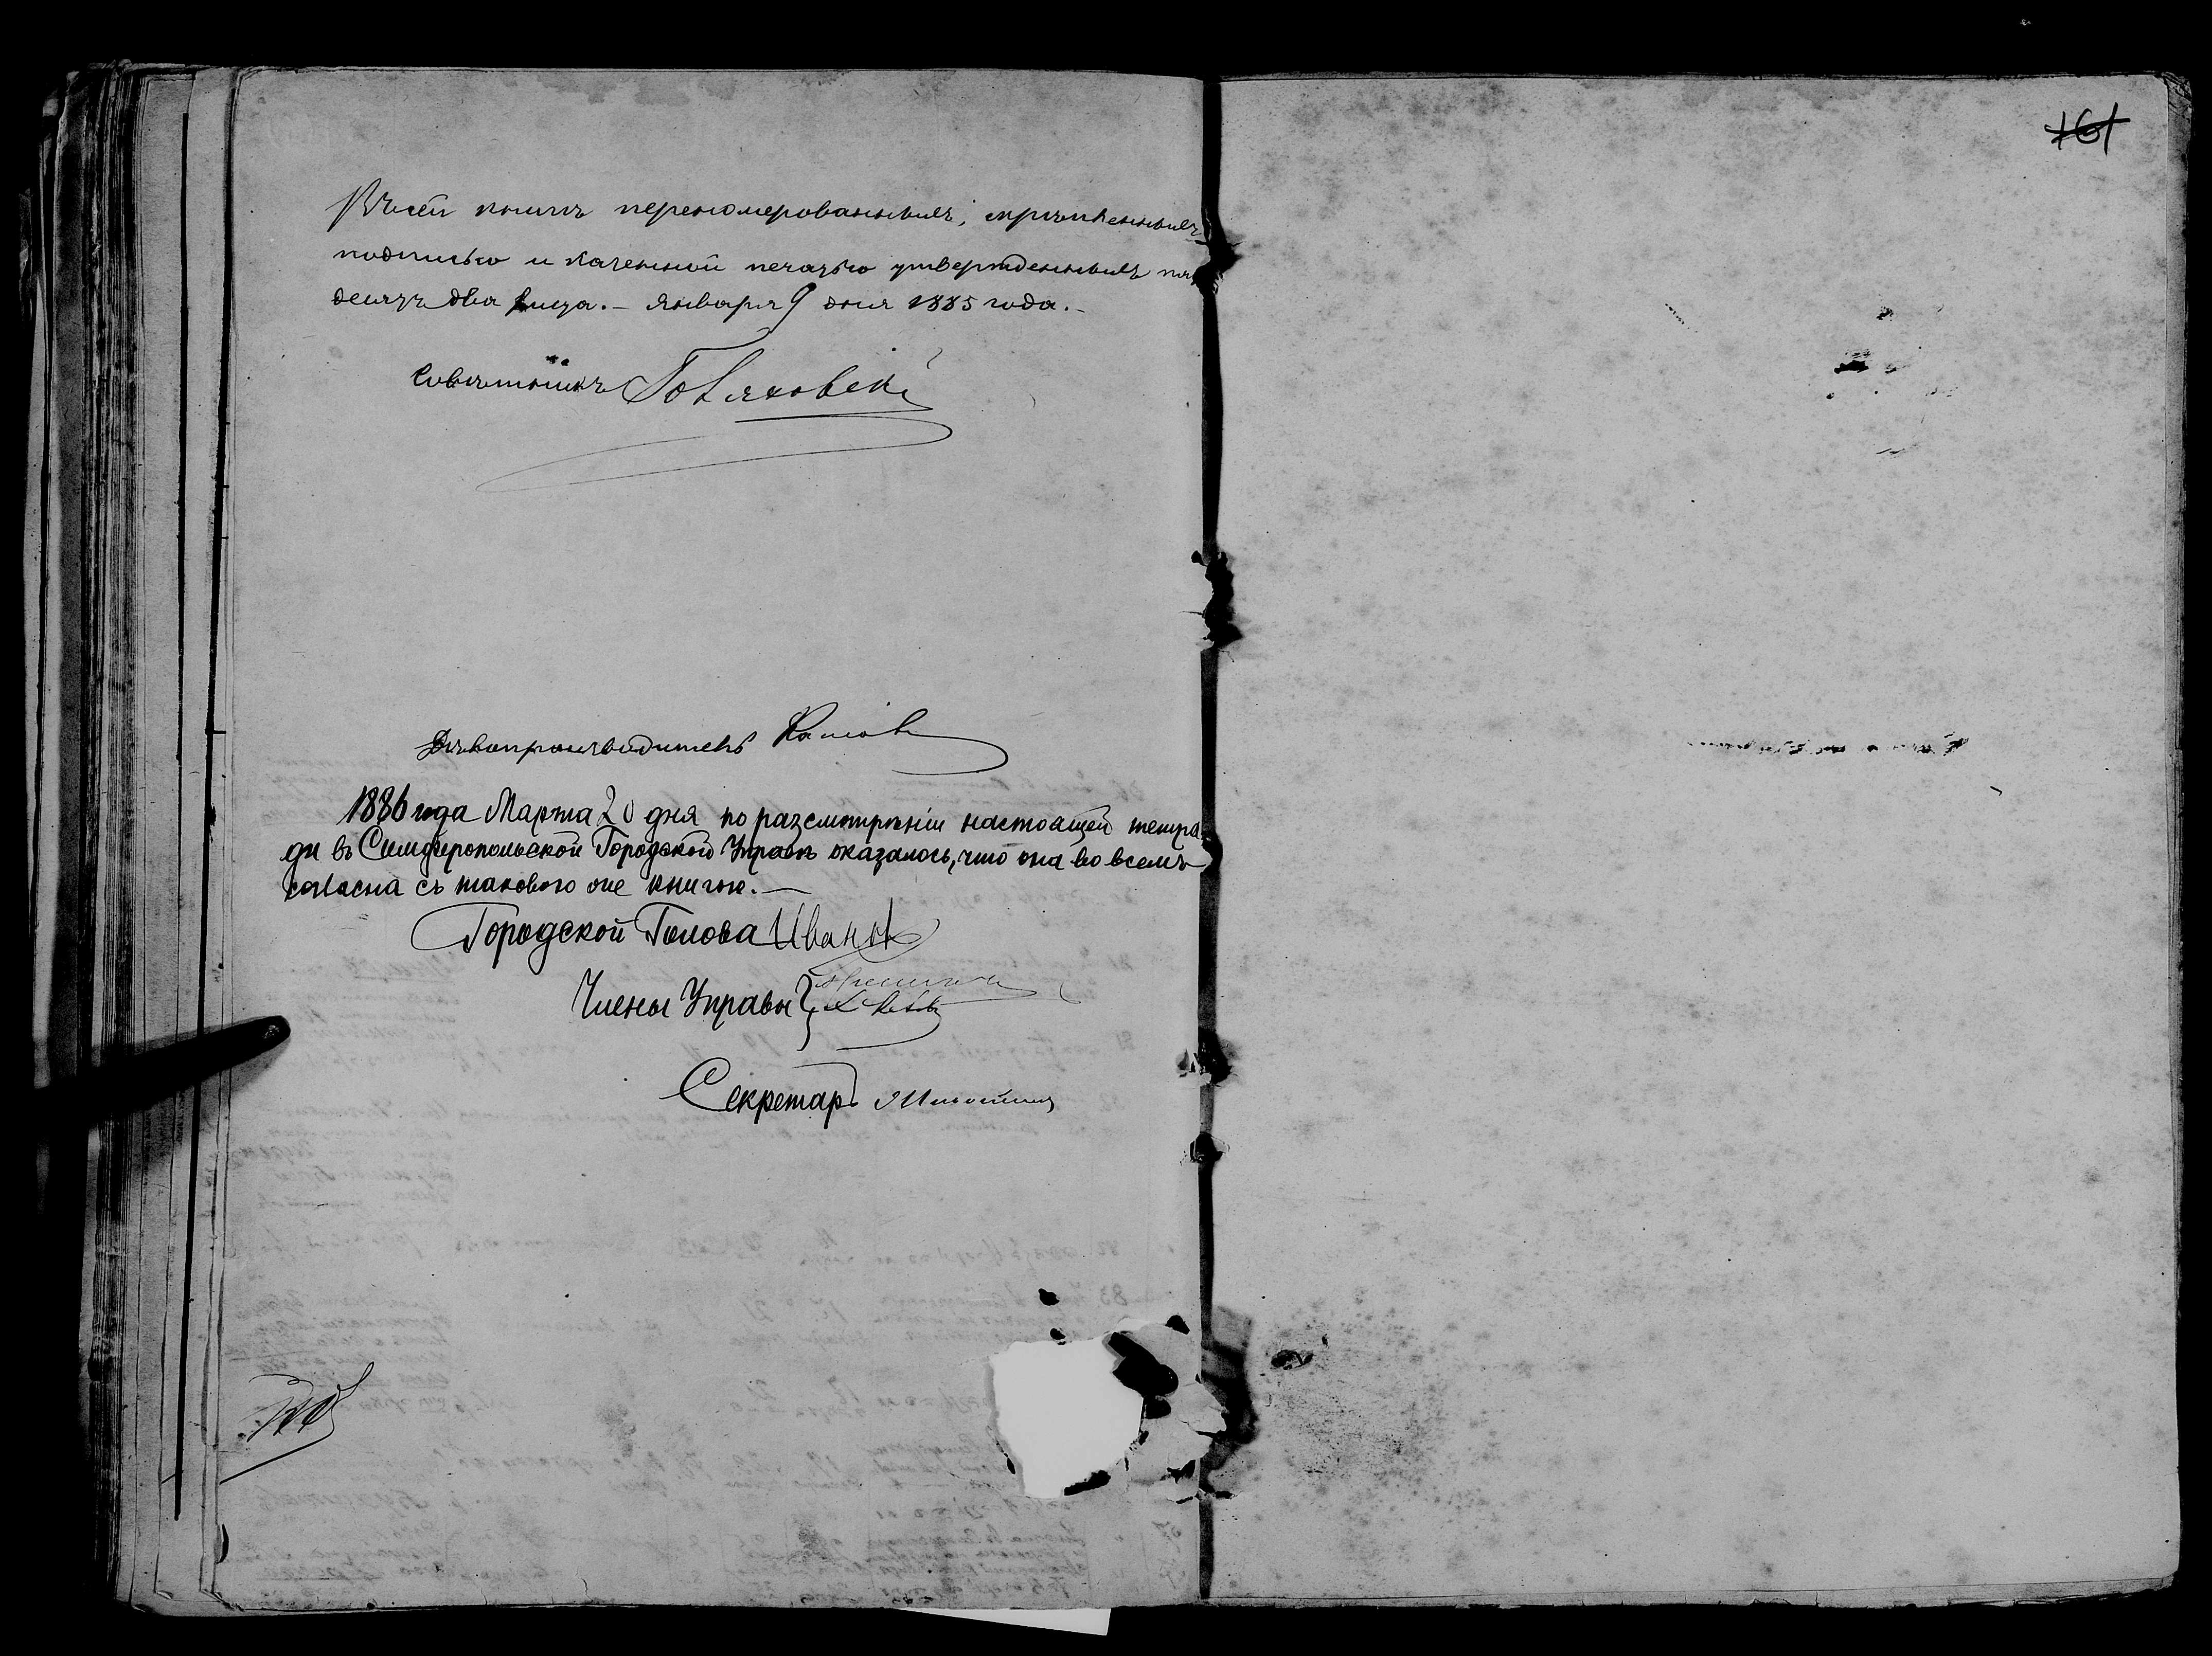 Въ сей книгѣ перенюмерованныхъ, скрѣпленныхъ
подписью и казенной печатью утвержденныхъ пять
десятъ два листа. — Января 9 дня 1885 года. —
Совѣтникъ
Дѣлопроизводитель
1886 года Марта 20 дня по разсмотрѣніи настоящей тетра
ди въ Симферопольской Городской Управѣ оказалось, что она во всемъ
согласна съ таковою же книгою. —
Городской Голова Иванов
Члены Управы
Секретарь
161